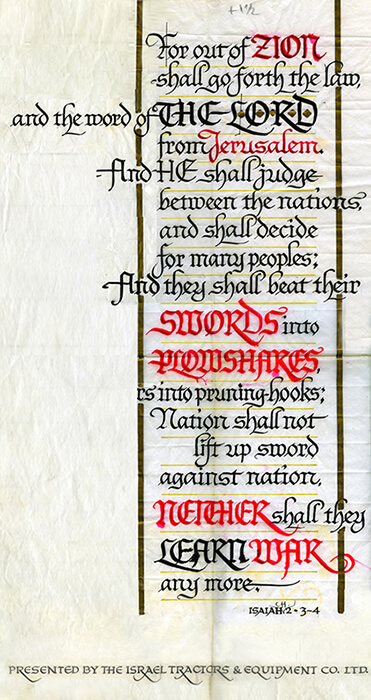 +1½
For out of ZION
shall go forth the law,
and the word of THE LORD
from Jerusalem.
And HE shall judge
between the nations,
and shall decide
for many peoples;
And they shall beat their
SWORDS into
PLOWSHARES,
rs into pruning-hooks;
Nation shall not
lift up sword
against nation,
NEITHER shall they
LEARN WAR
any more.
ISAIAH CH. 2 · 3-4
PRESENTED BY THE ISRAEL TRACTORS & EQUIPMENT CO. LTD.